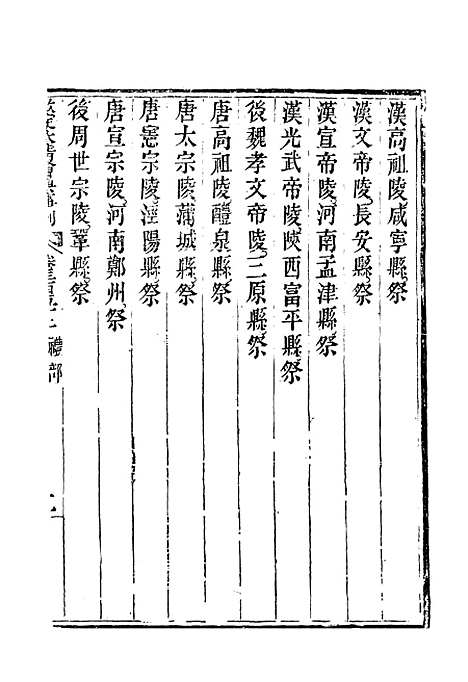 漢高祖陵咸寧縣祭
漢文帝陵長安縣祭
漢宣帝陵河南孟津縣祭
漢光武帝陵陝西富平縣祭
後魏孝文帝陵三原縣祭
唐高祖陵醴泉縣祭
唐太宗陵蒲城縣祭
唐憲宗陵涇陽縣祭
唐宣宗陵河南鄭州祭
後周世宗陵鞏縣祭
禮部